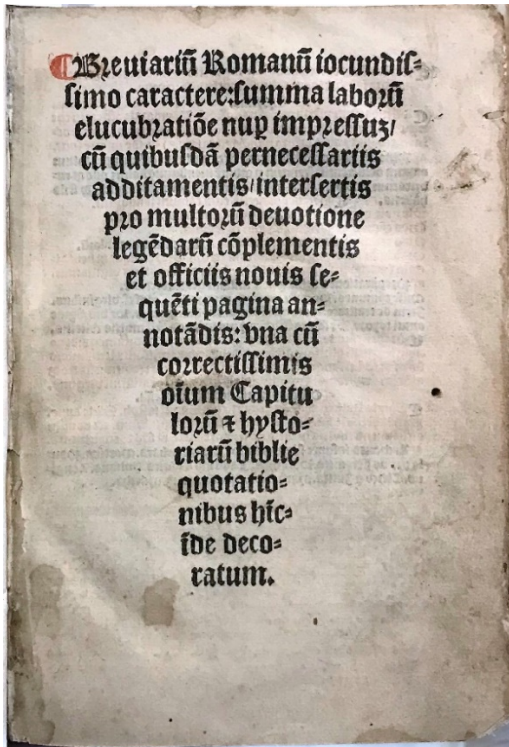 ¶Breuiariũ Romanũ iocundiſ⸗
ſimo caractere:ſumma laborũ
elucubratiõe nuꝑ impreſſuꝫ/
cũ quibuſdã perneceſſariis
additamentis/interſertis
pro multorũ deuotione
legẽdarũ cõplementis
et officiis nouis ſe⸗
quẽti pagina an⸗
notãdis: vna cũ
correctiſſimis
oĩum Capitu
lorũ ⁊ hyſto⸗
riarũ biblie
quotatio⸗
nibus hĩc⸗
ĩde deco⸗
ratum.